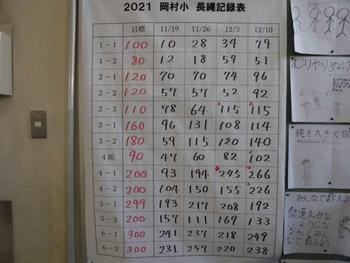 2021 岡村小 長縄記録表
目標 11/19 11/26 12/3 12/10
1-1 100 10 28 34 79
1-2 80 12 18 51 59
2-1 120 70 70 74 96
2-2 120 57 57 52 92
2-3 110 78 64 115 115
3-1 160 96 131 108 114
3-2 180 59 115 120 140
4組 90 47 60 82 102
4-1 200 93 194 245 266
4-2 200 104 150 155 226
5-1 299 193 217 208 192
5-2 200 157 111 169 133
6-1 300 241 237 218 249
6-2 300 231 257 220 238
むりやりぬけ
縄を大きく回
みんなで数え